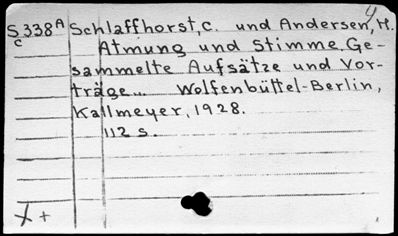 4
S 338 A Schlaffhorst, C. und Andersen, H.
c Atmung und Stimme. Ge-
sammelte Aufsätze und Vor-
träge... Wolfenbüttel-Berlin,
Kallmeyer, 1928.
112 s.
X +